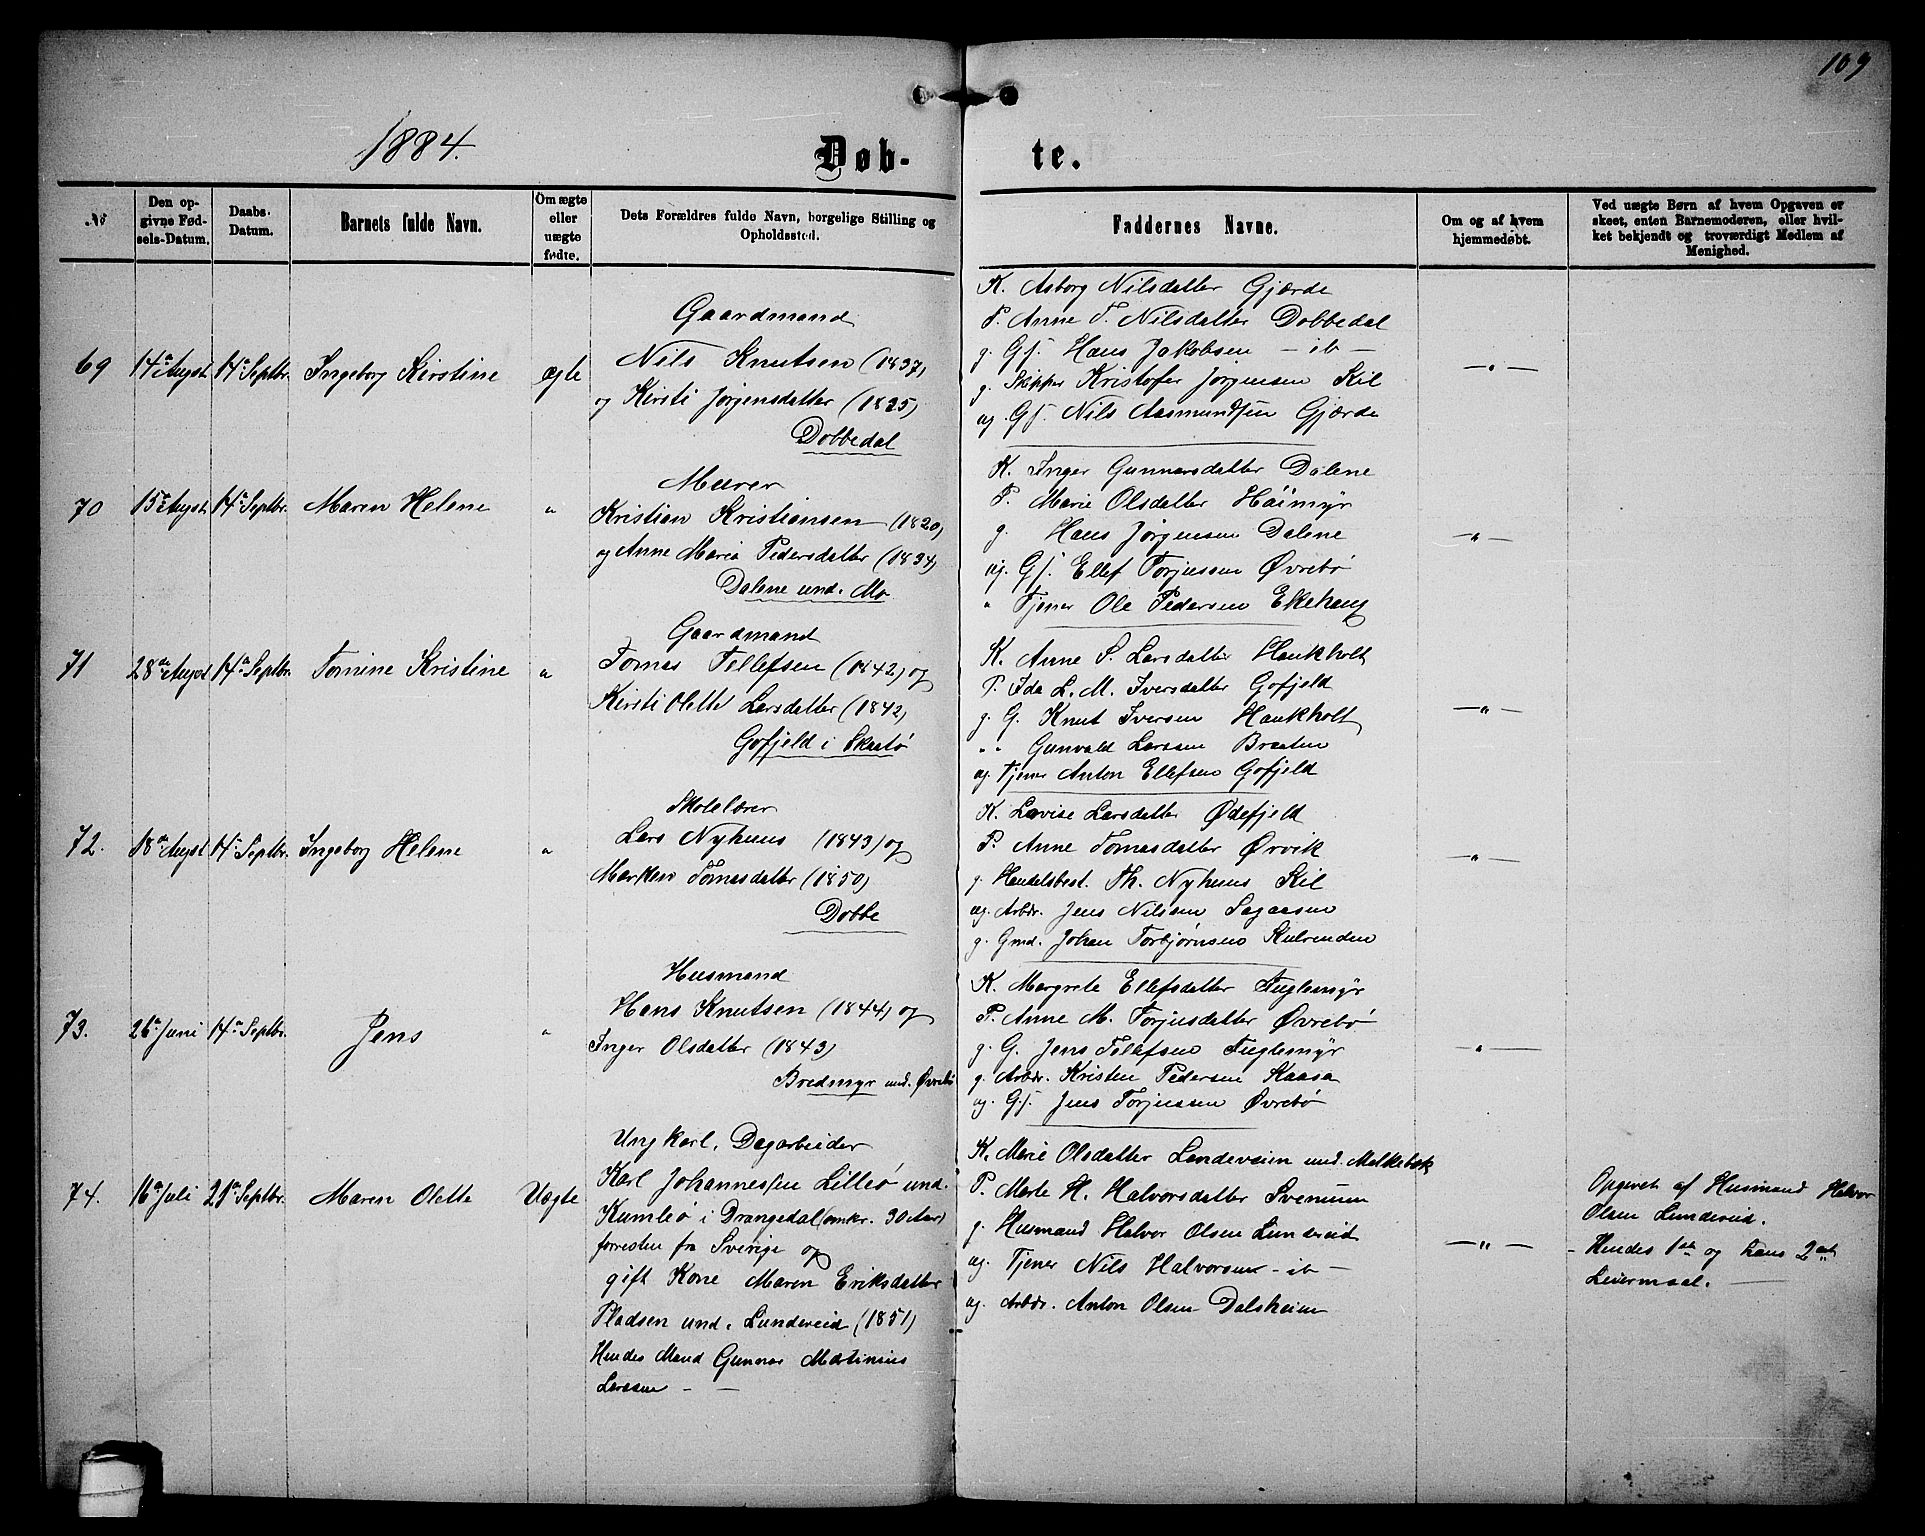 109
1884.
Døb-
te.
№
Den op-
givne Fød-
sels-Datum.
Daabs-
Datum.
Barnets fulde Navn.
Om ægte
eller
uægte
fødte.
Dets Forældres fulde Navn, borgelige Stilling og
Opholdssted.
Faddernes Navne.
Om og af hvem
hjemmedøbt.
Ved uægte Børn af hvem Opgaven er
skeet, enten Barnemoderen, eller hvil-
ket bekjendt og troværdigt Medlem af
Menighed.
69
14de Augst.
14de Septbr.
Ingeborg Kirstine
ægte
Gaardmand
Nils Knutsen (1837)
og Kirsti Jørgensdatter (1825)
Dobbedal
K. Asborg Nilsdatter Gjærde
P. Anne T. Nilsdatter Dobbedal
g. Gf. Hans Jakobsen — ib —
g. Skipper Kristofer Jørgensen Kil
ug. Gf. Nils Aasmundsen Gjærde
— " —
70
15de Augst.
14de Septbr.
Maren Helene
"
Murer
Kristian Kristiansen (1820)
og Anne Maria Pedersdatter (1834)
Dalene und. Mo
K. Inger Gunnarsdatter Dalene
P. Marie Olsdatter Høimyr
g. Hans Jørgensen Dalene
ug. Gf. Ellef Torjussen Øvrebø
" Tjener Ole Pedersen Ekehaug
— " —
71
28de Augst
14de Septbr.
Tomine Kristine
"
Gaardmand
Tomas Tellefsen (1842) og
Kirsti Olette Larsdatter (1842)
Gofjeld i Skaatø
K. Anne S. Larsdatter Haukholt
P. Ida L. M. Iversdatter Gofjeld
g. G. Knut Iversen Haukholt
" " Gunvald Larsen Braaten
ug. Tjener Anton Ellefsen Gofjeld
— " —
72.
18de Augst
14de Septbr.
Ingeborg Helene
"
Skolelærer
Lars Nyhuus (1843) og
Marken Tomasdatter (1850)
Dobbe
K. Lovise Larsdatter Ødefjeld
P. Anne Tomasdatter Ørvik
g. Handelsbest. Th. Nyhuus Kil
ug. Arbdr. Jens Nilsen Sagaasen
g. Gmd. Johan Torbjørnsen Kulrenden
— " —
73.
26de Juni
14de Septbr.
Jens
"
Husmand
Hans Knutsen (1844) og
Inger Olsdatter (1843)
Bredmyr und. Øvrebø
K. Margrete Ellefsdatter Fuglemyr
P. Anne M. Torjusdatter Øvrebø
g. G. Jens Tellefsen Fuglemyr
g. Arbdr. Kristen Pedersen Kaasa
ug. Gf. Jens Torjussen Øvrebø
— " —
74.
16de Juli
21de Septbr.
Maren Olette
Uægte
Ungkarl, Dagarbeider
Karl Johannessen Lilleø und.
Kumleø i Drangedal (omkr. 30 Aar)
forresten fra Sverige og
gift Kone Maren Eriksdatter
Pladsen und. Lundereid (1851)
Hendes Mand Gunnar Martinius
Larssen — —
K. Marie Olsdatter Landeveien und. Melkebæk
P. Marte H. Halvorsdatter Svenum
g. Husmand Halvor Olsen Lundereid
ug. Tjener Nils Halvorsen — ib —
ug. Arbdr. Anton Olsen Dalsheim
— " —
Opgivet af Husmand Halvor
Olsen Lundereid.
— Hendes 1ste og hans 2det
Leiermaal. —